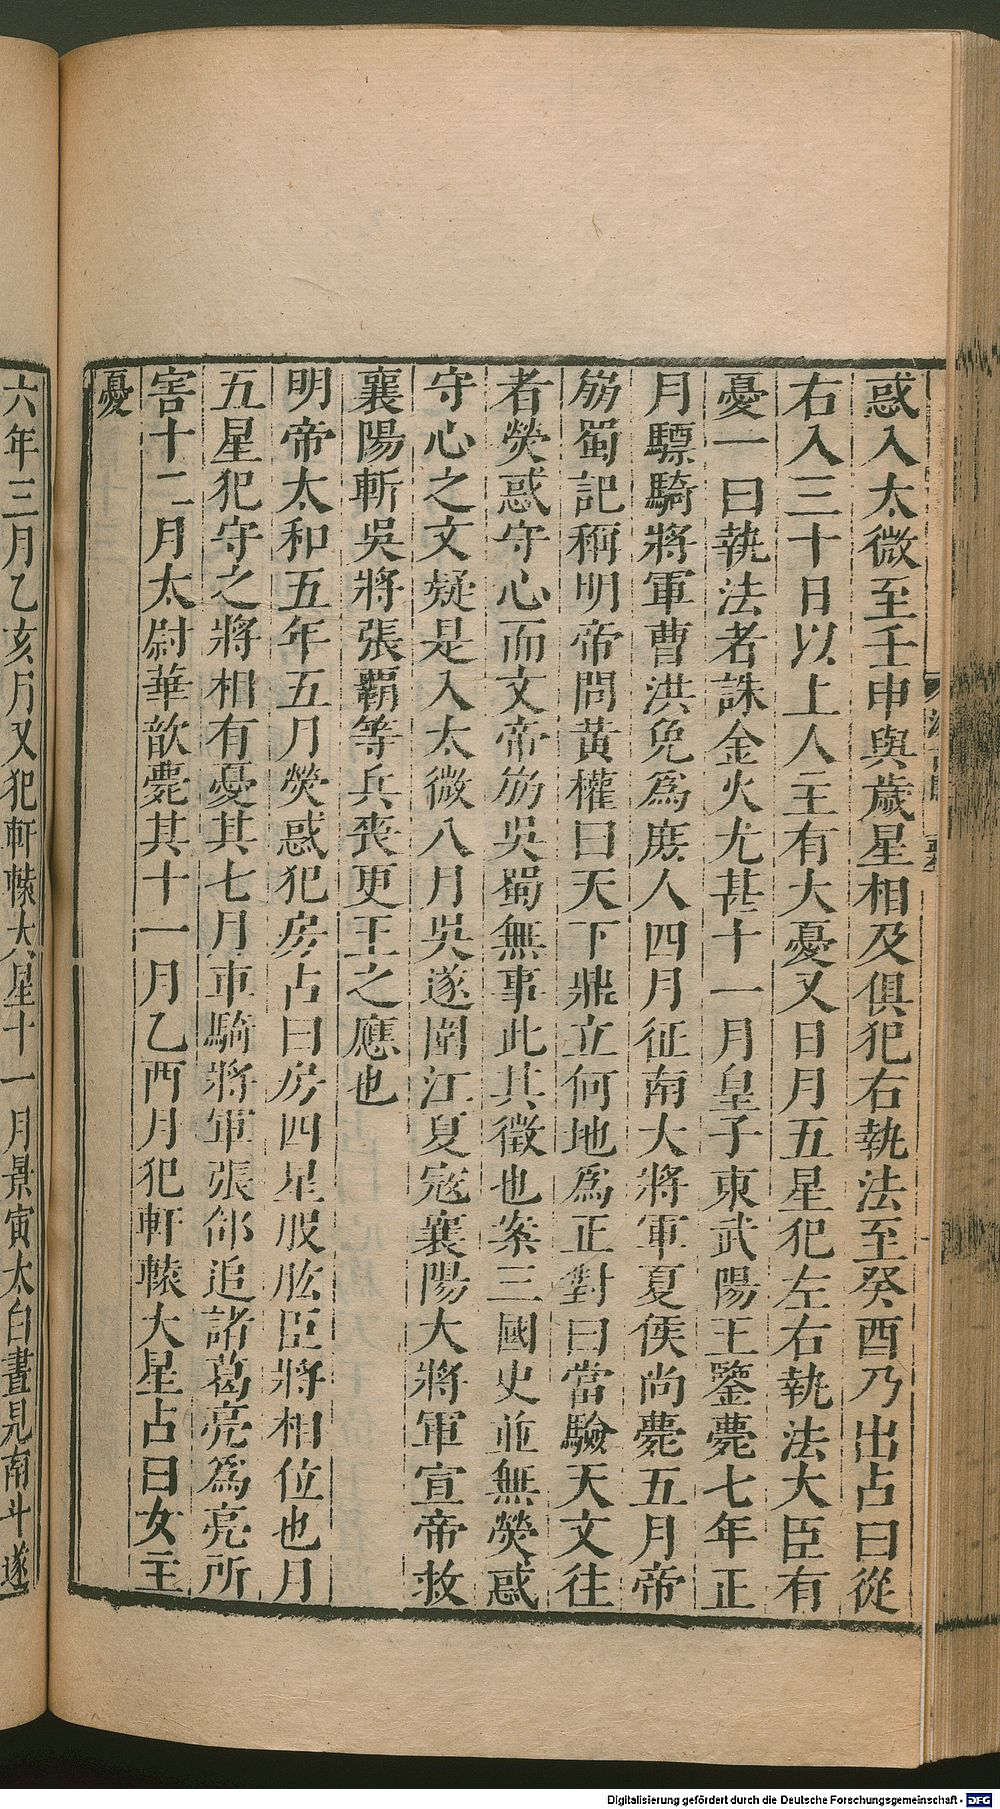 惑入太微至壬申與歲星相及俱犯右執法至癸酉乃出占曰從
右入三十日以上人主有大憂又日月五星犯左右執法大臣有
憂一曰執法者誅金火尤甚十一月皇子東武陽王鑒薨七年正
月驃騎將軍曹洪免爲庶人四月征南大將軍夏侯尚薨五月帝
崩蜀記稱明帝問黃權曰天下鼎立何地爲正對曰當驗天文往
者熒惑守心而文帝崩吳蜀無事此其徵也案三國史並無熒惑
守心之文疑是入太微八月吳遂圍江夏寇襄陽大將軍宣帝救
襄陽斬吳將張霸等兵喪更王之應也
明帝太和五年五月熒惑犯房占曰房四星股肱臣將相位也月
五星犯守之將相有憂其七月車騎將軍張郃追諸葛亮爲亮所
害十二月太尉華歆薨其十一月乙酉月犯軒轅大星占曰女主
憂
六年三月乙亥月又犯軒轅大星十一月景寅太白晝見南斗遂
Digitalisierung gefördert durch die Deutsche Forschungsgemeinschaft - DFG